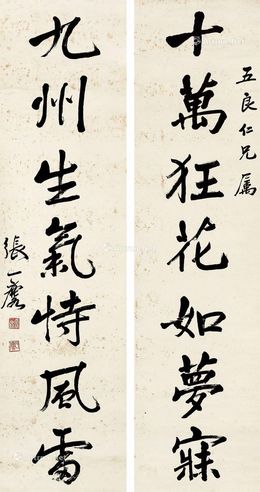 五良仁兄属
十萬狂花如夢寐
九州生氣恃風雷
張一麐